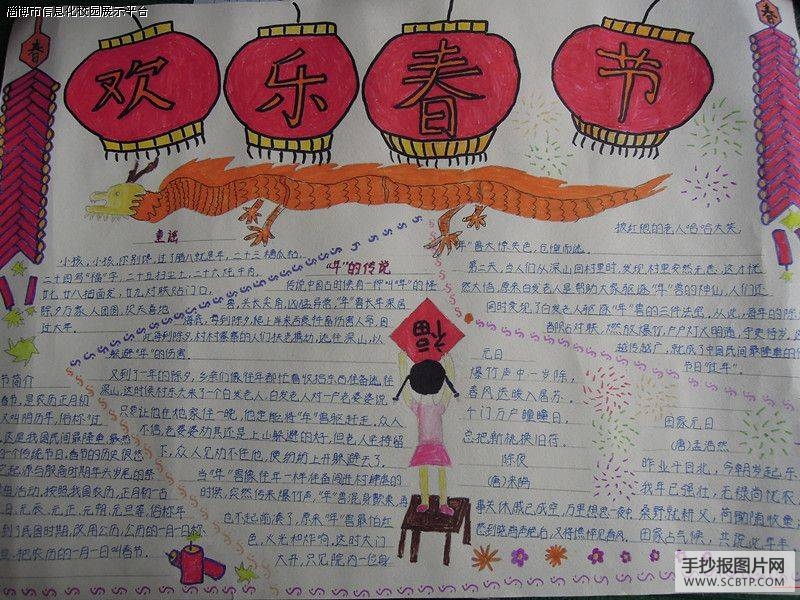 淄博市信息化校园展示平台
春
春
欢乐春节
童谣
小孩,小孩,你别馋,过了腊八就是年,二十三糖瓜粘,
二十四写"福"字,二十五扫尘土,二十六炖羊肉,
除夕万家人团圆,
过大年。
"年"的传说
传说中国古时侯有一种叫"年"的怪
兽,头长尖角,凶猛异常,"年"兽长年深居
海底,每到除夕,爬上岸来吞食牲畜伤害人命,因
此每到除夕,村村寨寨的人们扶老携幼,逃往深山,以
躲避"年"的伤害
又到了一年的除夕,乡亲们像往年都忙着收拾东西准备逃往
深山,这时侯村东头来了一个白发老人,白发老人对一户老婆婆说
只要让他在她家住一晚,他定能将"年"兽驱赶走。众人
不信,老婆婆劝其还是上山躲避的好,但老人坚持留
下,众人见劝不住他,便纷纷上山躲避去了。
当"年"兽像往年一样准备闯进村肆虐的
时侯,突然传来爆竹声,"年"兽混身颤栗,再
也不敢向前凑了,原来"年"兽最怕红
色,火光和炸响,这时大门
大开,只见院内一位身
披红袍的老人哈哈大笑,
"年"兽大惊失色,仓惶而逃。
第二天,当人们从深山回村里时,发现村里安然无恙,这才恍
然大悟,原来白发老人是帮助大家驱逐"年"兽的神仙,人们还
同时发现了白发老人驱逐"年"兽的三件法宝。从此,每年的除夕
都贴对联,燃放爆竹,户户灯火明通,守更待岁,这
越传越广,就成了中国民间最隆重的传
节日"过年"。
福
节简介
春节,是农历正月初
又叫阴历年,俗称"过
这是我国民间最隆重最热
个传统节日,春节的历史很悠
它起源与殷商时期年头岁尾的祭
祖活动,按照我国农历,正月初一古
日,元辰,元正,元朔,元旦等,俗称年
到了民国时期,改用公历,公历的一月一日称
旦,把农历的一月一日叫春节。
元日
爆竹声中一岁除,
春风送暖入屠苏。
千门万户瞳瞳日,
总把新桃换旧符。
除夜
(唐)来鹄
事关休戚已成空,万里相思一夜中
愁到晓鸡声绝后,又将憔悴见春风。
田家元日
(唐)孟浩然
昨夜斗回北,今朝岁起东
我年已强壮,无禄尚忧农
桑野就耕父,荷锄随牧童
田家占气候,共说此年丰
手抄报图片网
WWW.SCBTP.COM